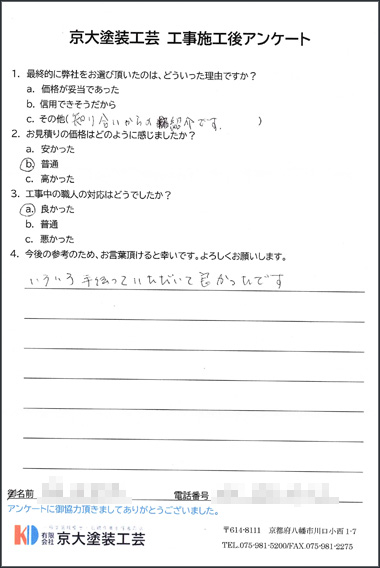 京大塗装工芸 工事施工後アンケート
1. 最終的に弊社をお選び頂いたのは、どういった理由ですか？
a. 価格が妥当であった
b. 信用できそうだから
c. その他(知り合いからの紹介です。)
2. お見積りの価格はどのように感じましたか？
a. 安かった
b. 普通
c. 高かった
3. 工事中の職人の対応はどうでしたか？
a. 良かった
b. 普通
c. 悪かった
4. 今後の参考のため、お言葉頂けると幸いです。よろしくお願いします。
いろいろ手伝っていただいて良かったです
御名前 電話番号
アンケートに御協力頂きましてありがとうございました。
KD 有限会社 京大塗装工芸
〒614-8111 京都府八幡市川口小西1-7
TEL.075-981-5200/FAX.075-981-2275